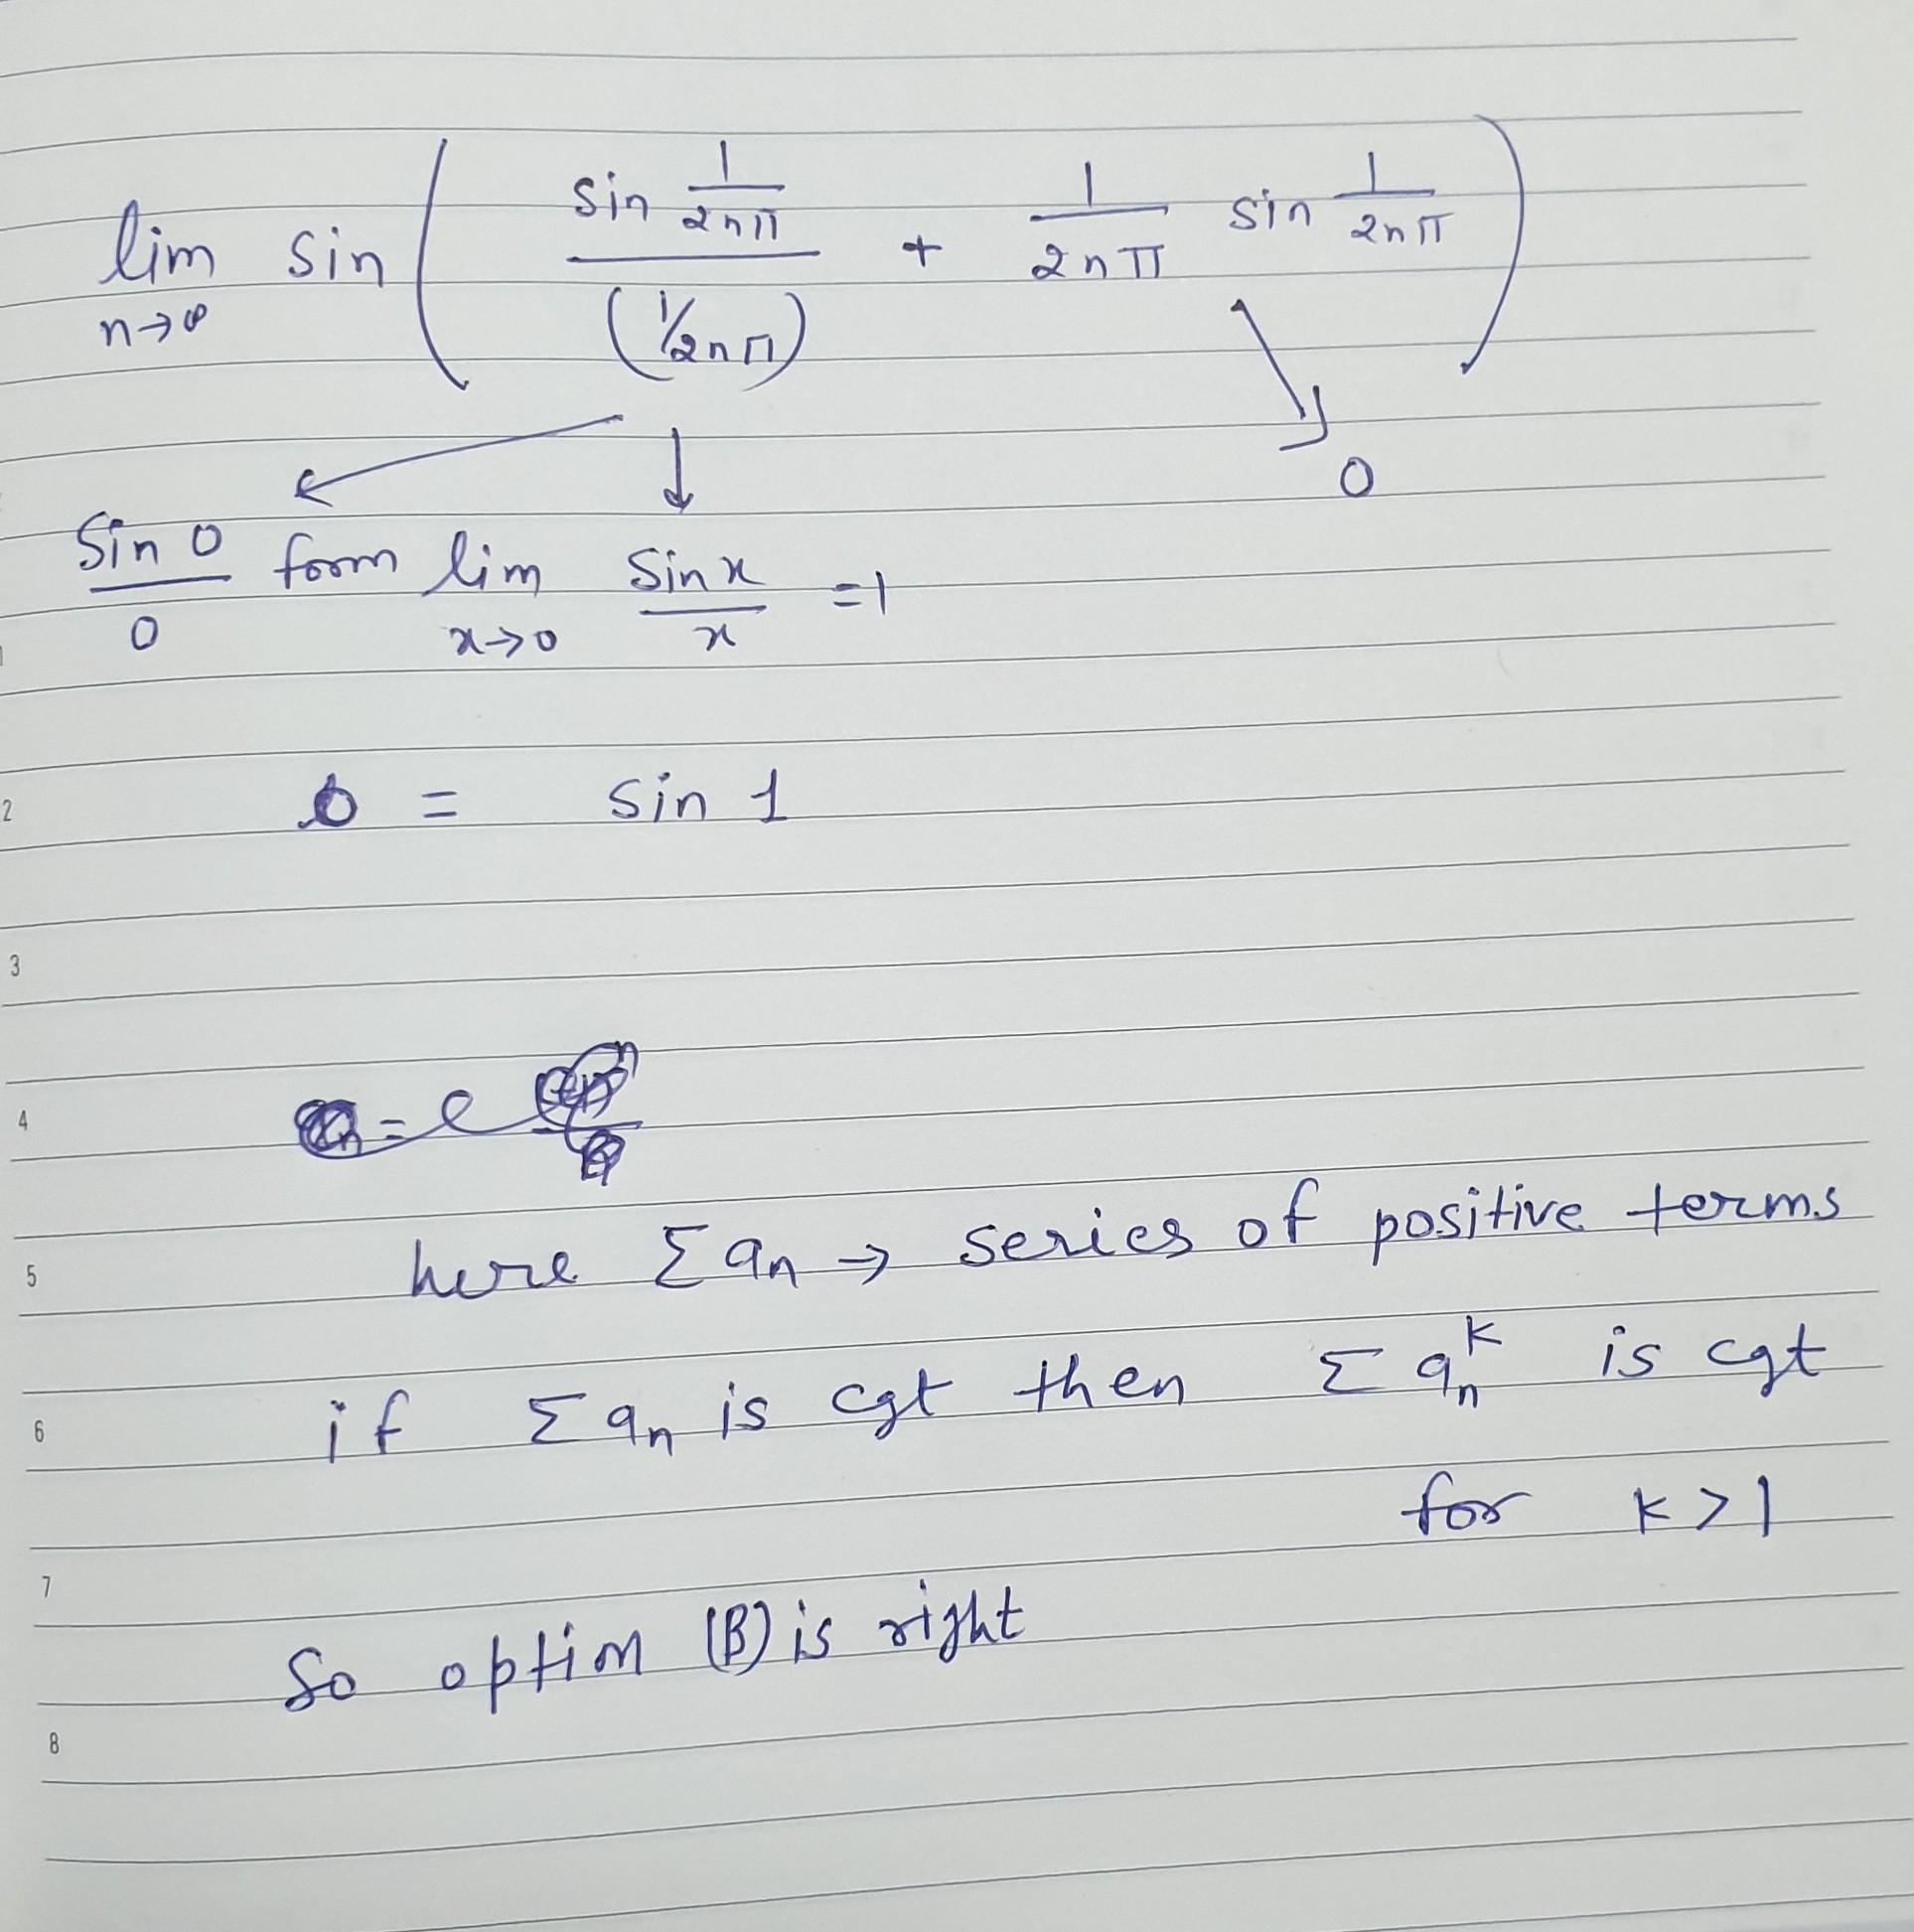 lim n→∞ sin ( sin 1/2nπ / (1/2nπ) + 1/2nπ sin 1/2nπ )
0
sin 0 / 0 form lim x→0 sin x / x = 1
= sin 1
= e
here Σ an → series of positive terms
if Σ an is cgt then Σ an^k is cgt
for k > 1
So option (B) is right
2
3
4
5
6
7
8